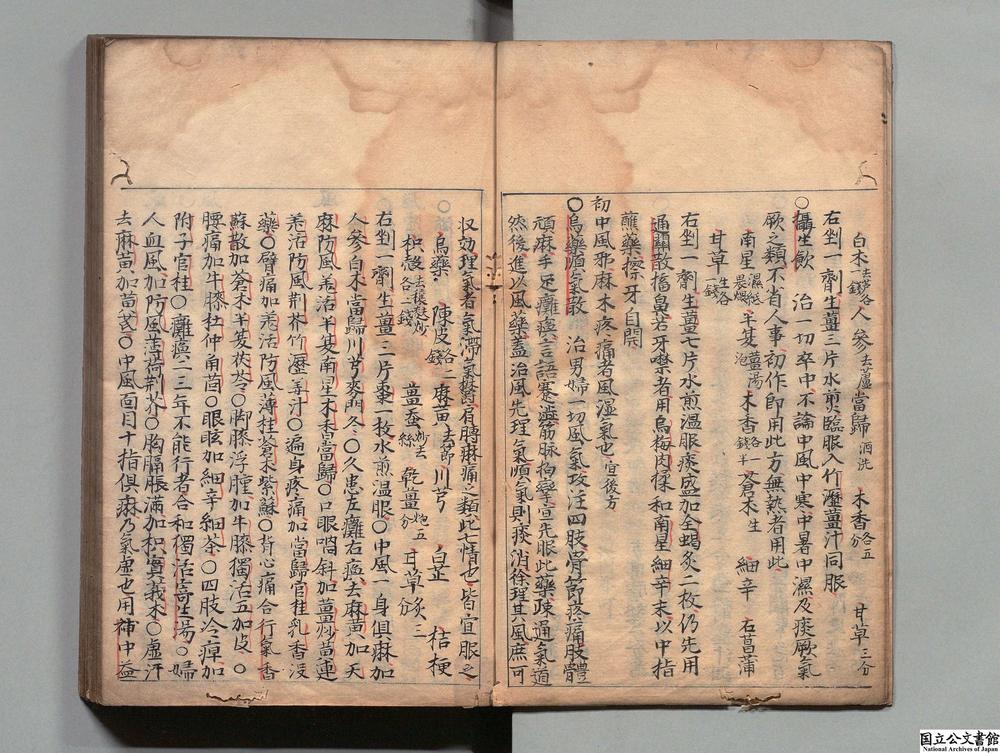 白朮去芦各一錢 人參去蘆 當歸酒洗 木香各五分 甘草三分
右剉一劑生薑三片水煎臨服入竹瀝薑汁同服
○攝生飲 治一切卒中不論中風中寒中暑中濕及痰厥氣
厥之類不省人事初作即用此方無熱者用此
南星濕紙裹煨 半夏薑湯泡 木香各錢半 蒼朮生 細辛 石菖蒲
甘草生各一錢
右剉一劑生薑七片水煎温服痰盛加全蝎炙二枚仍先用
通關散搐鼻若牙噤者用烏梅肉揉和南星細辛末以中指
蘸藥擦牙自開
初中風邪麻木疼痛者風濕氣也 宜後方
○烏藥順氣散 治男婦一切風氣攻注四肢骨節疼痛肢體
頑麻手足癱瘓言語蹇澁筋脉拘攣宜先服此藥疎通氣道
然後進以風藥蓋治風先理氣順氣則痰消徐理其風庶可
収効理氣者氣滯氣鬱肩膊麻痛之類此七情也皆宜服之
○烏藥 陳皮各二錢 麻黄去節 川芎 白芷 桔梗
枳殻去穰麩炒各一錢 薑蚕炒去絲 乾薑炮五分 甘草炙三分
右剉一劑生薑三片棗一枚水煎温服○中風一身俱麻加
人參白朮當歸川芎麥門冬○久患左癱右瘓去麻黄加天
麻防風羌活半夏南星木香當歸○口眼喎斜加薑炒黄連
羌活防風荆芥竹瀝姜汁○遍身疼痛加當歸官桂乳香没
藥○臂痛加羌活防風薄桂蒼朮紫蘇○背心痛合行氣香
蘇散加蒼朮半夏茯苓○脚膝浮腫加牛膝獨活五加皮○
腰痛加牛膝杜仲角茴○眼眩加細辛細茶○四肢冷痺加
附子官桂○癱瘓二三年不能行者合和獨活寄生湯○婦
人血風加防風薄荷荆芥○胸膈脹滿加枳實莪朮○虚汗
去麻黄加黄芪○中風面目十指俱麻乃氣虚也用補中益
国立公文書館
National Archives of Japan